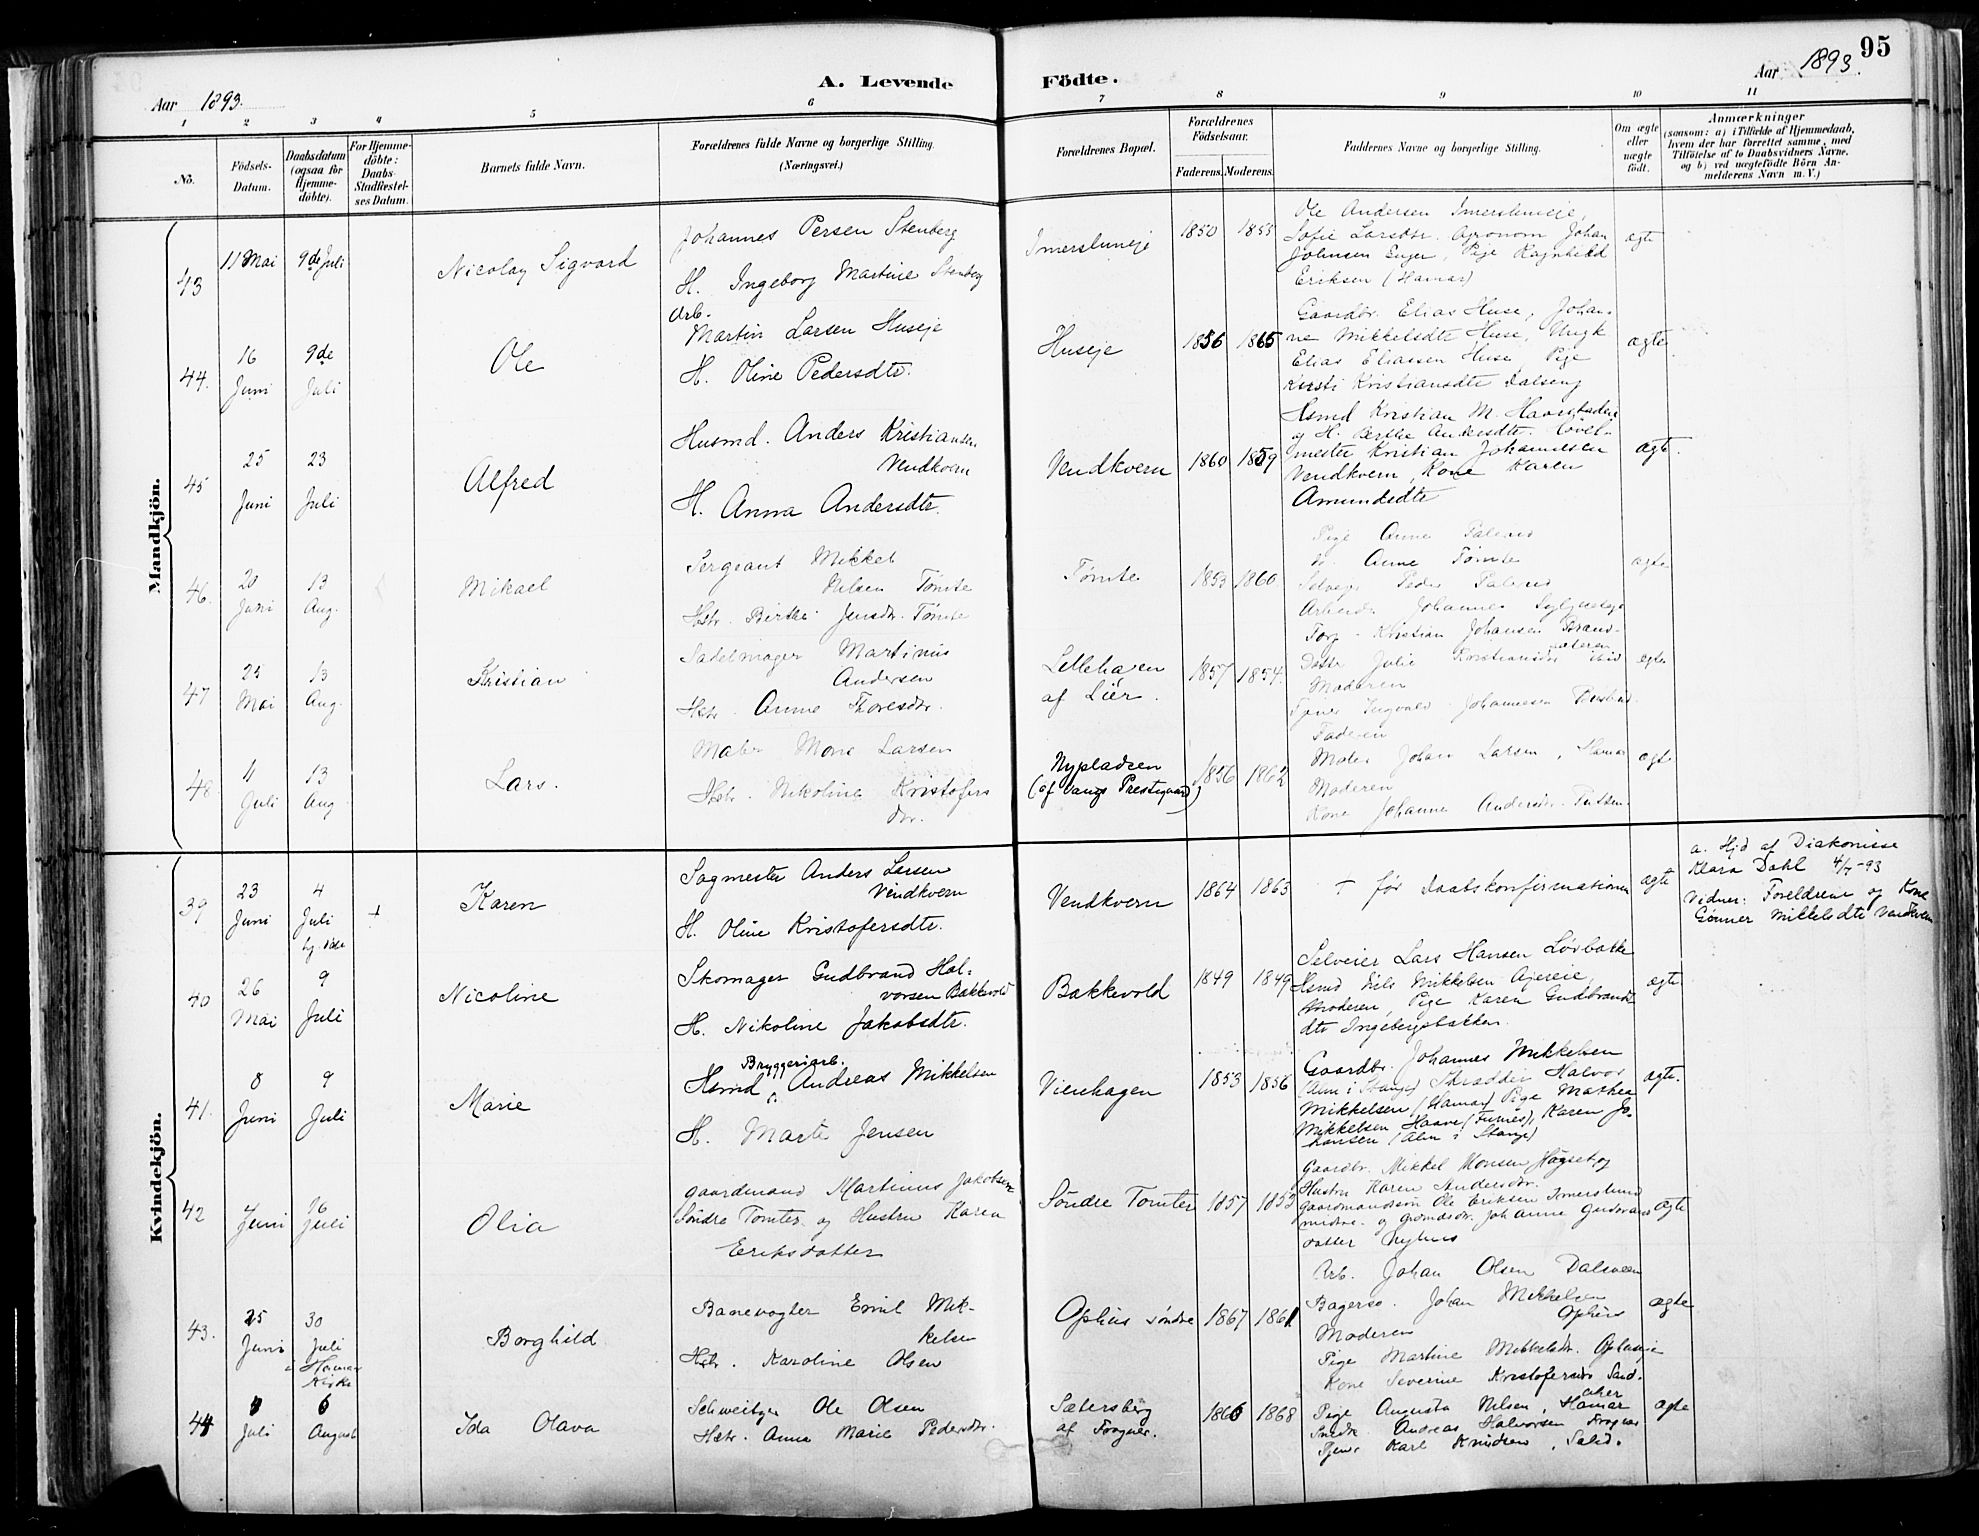 95
A. Levende Födte.
Aar 1893.
Aar 1893.
1 2 3 4 5 6 7 8 9 10 11
No.
Födsels-
Datum.
Daabsdatum
(ogsaa for
Hjemme-
döbte).
For Hjemme-
döbte:
Daabs-
Stadfæstel-
ses Datum.
Barnets fulde Navn.
Forældrenes fulde Navne og borgerlige Stilling.
(Næringsvei.)
Forældrenes Bopæl.
Forældrenes
Födselsaar.
Faderens. Moderens.
Faddernes Navne og borgerlige Stilling.
Om ægte
eller
uægte
födt.
Anmærkninger
(saasom: a) i Tilfælde af Hjemmedaab,
hvem der har forrettet samme, med
Tilföielse af to Daabsvidners Navne.
og b) ved uægtefödte Börn An-
melderens Navn m. V.)
Mandkjön.
43
11 Mai
9de Juli
Nicolay Sigvard
Johannes Persen Stenberg
H. Ingeborg Martine Stenberg
Imerslundeje
1850 1853
Ole Andersen Imerslundeje,
Sofie Larsdtr. Agronom Johan
Johnsen Enger, Pige Ragnhild
Eriksen (Hamar)
ægte
44.
16
Juni
9de
Juli
Ole
Arb.
Martin Larsen Huseje
H. Oline Pedersdtr.
Huseje
1856 1865
Gaardbr. Elias Huse, Johan-
ne Mikkelsdtr Huse, Ungk
Elias Eliassen Huse, Pige
Kirsti Kristiansdtr Dalseng
ægte
45
25
Juni
23
Juli
Alfred
Husmd. Anders Kristiansen
Vendkvern
H. Anna Andersdtr.
Vendkvern
1860 1859
Hsmd Kristian M. Haarstadeie
og H. Berthe Andersdtr.
mester Kristian Johannesen
Vendkvern, Kone Karen
Amundsdtr
ægte.
46.
20
Juni
13
Aug.
Mikael
Sergeant Mikkel
Nilsen Tømte
Hstr. Birthe Jensdr. Tømte
Tømte
1853 1860
Pige Anne
Anne Tømte
Selvejer Peder
Arbeider Johannes
ægte
47
25
Mai
13
Aug.
Kristian
Sadelmager Martinus
Andersen
Hstr. Anne Thoresdr.
Lillehagen
af Lier.
1857 1854.
Kristian Johansen
Datter Julie Kristiansdr ibid
Moderen
Tjener Sigvald Johannesen
Faderen
ægte
48.
11
Juli
13
Aug
Lars.
Maler Mons Larsen
Hstr. Nikoline Kristofers
dr.
Nypladsen
(af Vangs Prestegaard)
1856 1862
Maler Johan Larsen, Hamar
Moderen
Kone Johanne Andersdr.
ægte
Kvindekjön.
39
23
Juni
4
Juli
+
Karen
Sagmester Anders Larsen
Vendkvern
H. Oline Kristofersdtr.
Vendkvern
1864 1863
† før Daabskonfirmationen
ægte
a. Hjd af Diakonisse
Klara Dahl 4/7-93
Vidner: Foreldrene og Kone
Gønner Mikkelsdtr Vendkvern
40
26
Mai
9
Juli
Nicoline
Skomager Gudbrand Hal-
vorsen Bakkevold
H. Nikoline Jakobsdtr.
Bakkevold
1849 1849
Selveier Lars Hansen Løvbakke
Hsmd Nils Mikkelsen Ajereie,
Moderen, Pige Karen Gudbrands
dtr Ingebergsbakken.
ægte
41.
8
Juni
9
Juli
Marie
Bryggeriarb.
Hsmd Andreas Mikkelsen
H. Marte Jensen
Vienhagen
1853 1856
Gaardbr. Johannes Mikkelsen
(Alm i Stange) Skrædder Halvor
Mikkelsen (Hamar) Pige Mathea
Mikkelsen Haave (Furnes), Karen Jo-
hansen (Alm i Stange)
ægte.
42
4
Juni
16
Juli
Olia
Gaardmand Martinus Jakobsen
Søndre Tomter og Hustru Karen
Eriksdatter
Søndre Tomter
1857 1853
Gaardbr. Mikkel Monsen Hagset og
Hustru Karen Andersdr.
Gaardmandssøn Ole Eriksen Imerslund
nedre og Johanne Gudbrands
datter Nyhus
ægte
43.
25
Juni
30
Juli
Hamar
Kirke
Borghild
Banevogter Emil Mik-
kelsen
Hstr. Karoline Olsen
Ophus søndre
1867 1861
Arb. Johan Olsen Dalsveen
Bagersv. Johan Mikkelsen
Ophus
Moderen
Pige Martine Mikkelsdr. Ophuseje
Kone Severine Kristofersdr Sand-
aker
ægte
44
4
Juli
6
August
Ida Olava
Schweitzer Ole Olsen
Hstr. Anna Marie Pedersdr.
Sætersberg
af Frogner.
1866 1868
Pige Augusta Nilsen, Hamar
Smed Andreas Halvorsen Frogner
Tjener Karl Knudsen,
ægte